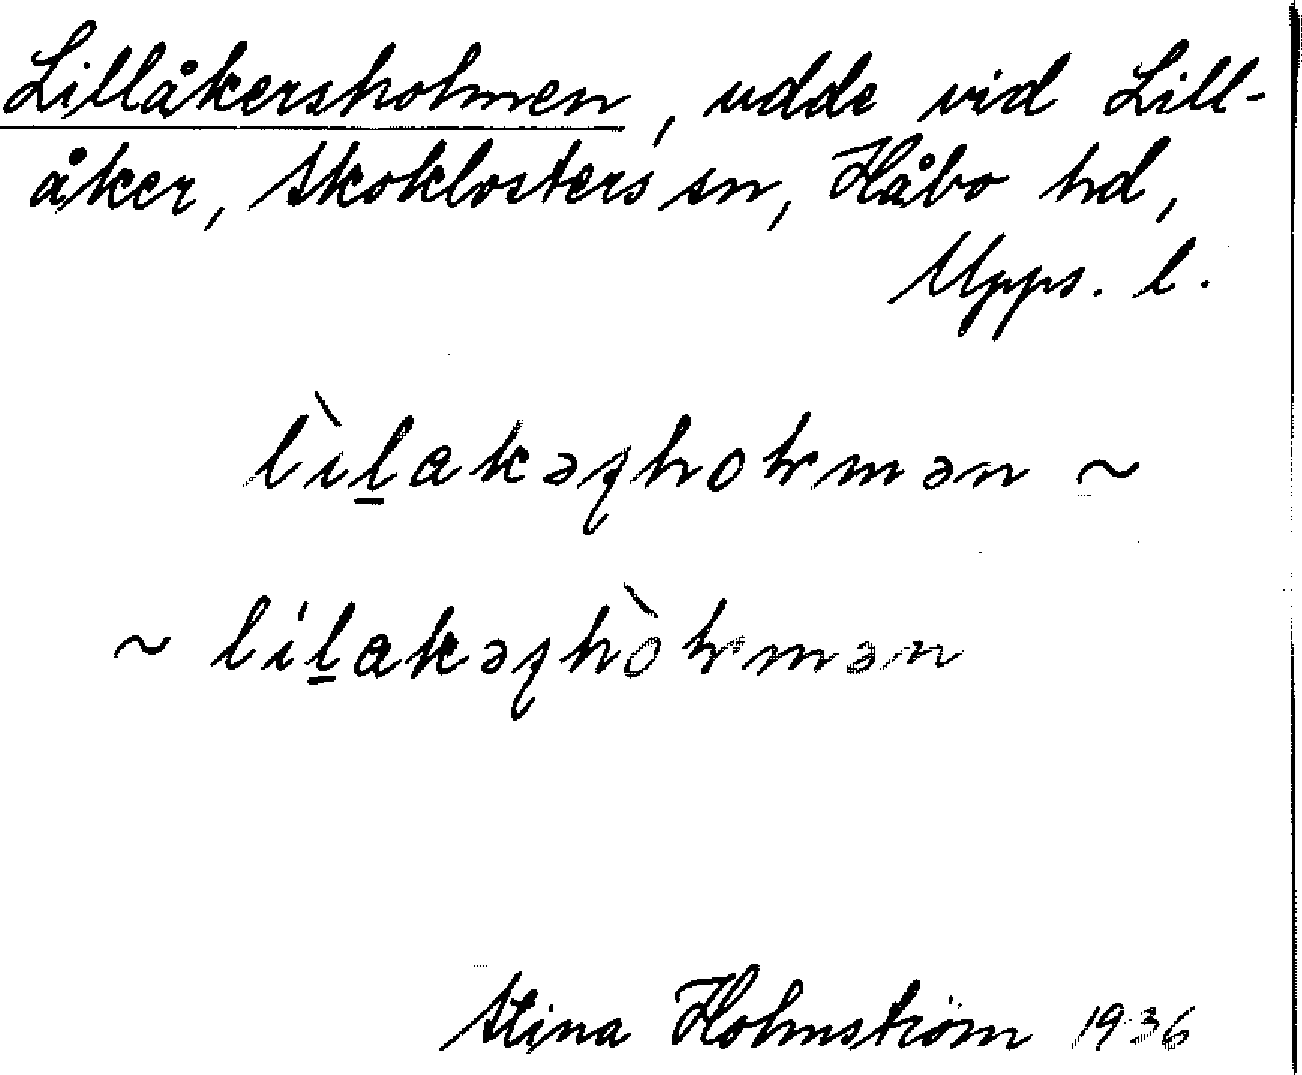 Lillåkersholmen, udde vid Lill-
åker, Skoklosters sn, Håbo hd,
Upps. l.
lìl̲akəʂhoɫmən ~
~ líl̲akəʂhòɫmən
Stina Holmström 1936